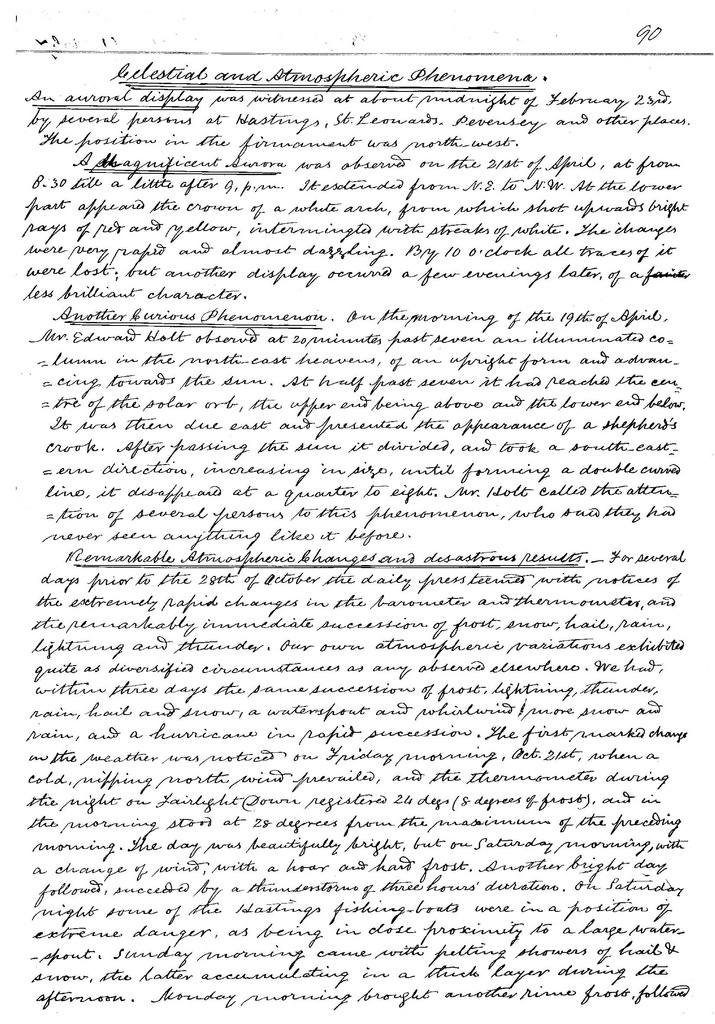 90
Celestial and Atmospheric Phenomena.
An auroral display was witnessed at about midnight of February 23rd.
by several persons at Hastings, St. Leonards, Pevensey and other places.
The position in the firmament was north-west.
A Magnificent Aurora was observed on the 21st of April, at from
8-30 till a little after 9, p.m. It extended from N.E. to N.W. At the lower
part appeared the crown of a white arch, from which shot upwards bright
rays of red and yellow, intermingled with streaks of white. The changes
were very rapid and almost dazzling. By 10 o'clock all traces of it
were lost; but another display occurred a few evenings later, of a fainter
less brilliant character.
Another Curious Phenomenon. On the morning of the 19th of April,
Mr. Edward Holt observed at 20 minutes past seven an illuminated co=
=lumn in the north-east heavens, of an upright form and advan=
=cing towards the sun. At half past seven it had reached the cen=
=tre of the solar orb, the upper end being above and the lower end below.
It was then due east and presented the appearance of a shepherd's
crook. After passing the sun it divided, and took a south-east=
=ern direction, increasing in size, until forming a double curved
line, it disappeared at a quarter to eight. Mr. Holt called the atten=
=tion of several persons to this phenomenon, who said they had
never seen anything like it before.
Remarkable Atmospheric Changes and disastrous results. — For several
days prior to the 28th of October the daily press teemed with notices of
the extremely rapid changes in the barometer and thermometer, and
the remarkably immediate succession of frost, snow, hail, rain,
lightning and thunder. Our own atmospheric variations exhibited
quite as diversified circumstances as any observed elsewhere. We had,
within three days the same succession of frost, lightning, thunder,
rain, hail and snow, a waterspout and whirlwind, more snow and
rain, and a hurricane in rapid succession. The first marked change
in the weather was noticed on Friday morning, Oct. 21st, when a
cold, nipping north wind prevailed, and the thermometer during
the night on Fairlight Down registered 24 degs (8 degrees of frost), and in
the morning stood at 28 degrees from the maximum of the preceding
morning. The day was beautifully bright, but on Saturday morning, with
a change of wind, with a hoar and hard frost. Another bright day
followed, succeeded by a thunderstorm of three hours' duration. On Saturday
night some of the Hastings fishing-boats were in a position of
extreme danger, as being in close proximity to a large water-
-spout. Sunday morning came with pelting showers of hail &
snow, the latter accumulating in a thick layer during the
afternoon. Monday morning brought another rime frost, followed